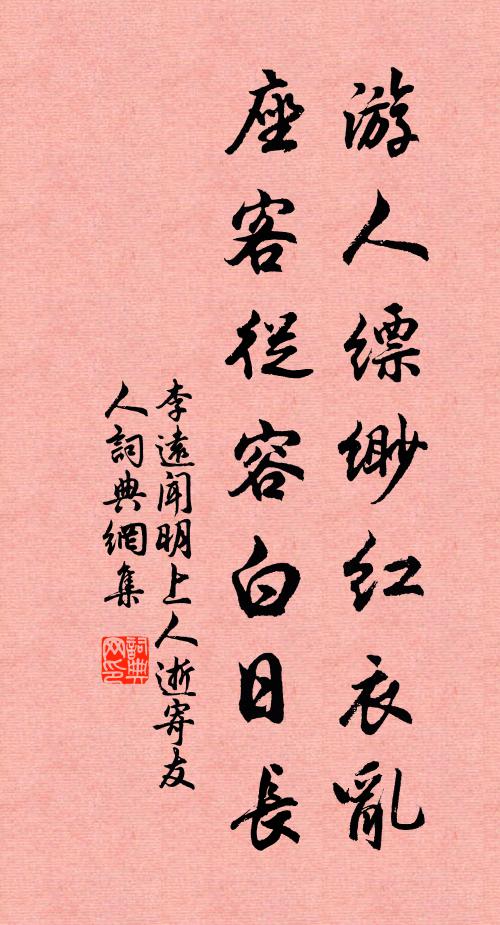 游人縹緲紅衣亂
座客從容白日長
李遠闻明上人逝寄友
人詞典網集
詞典
网印